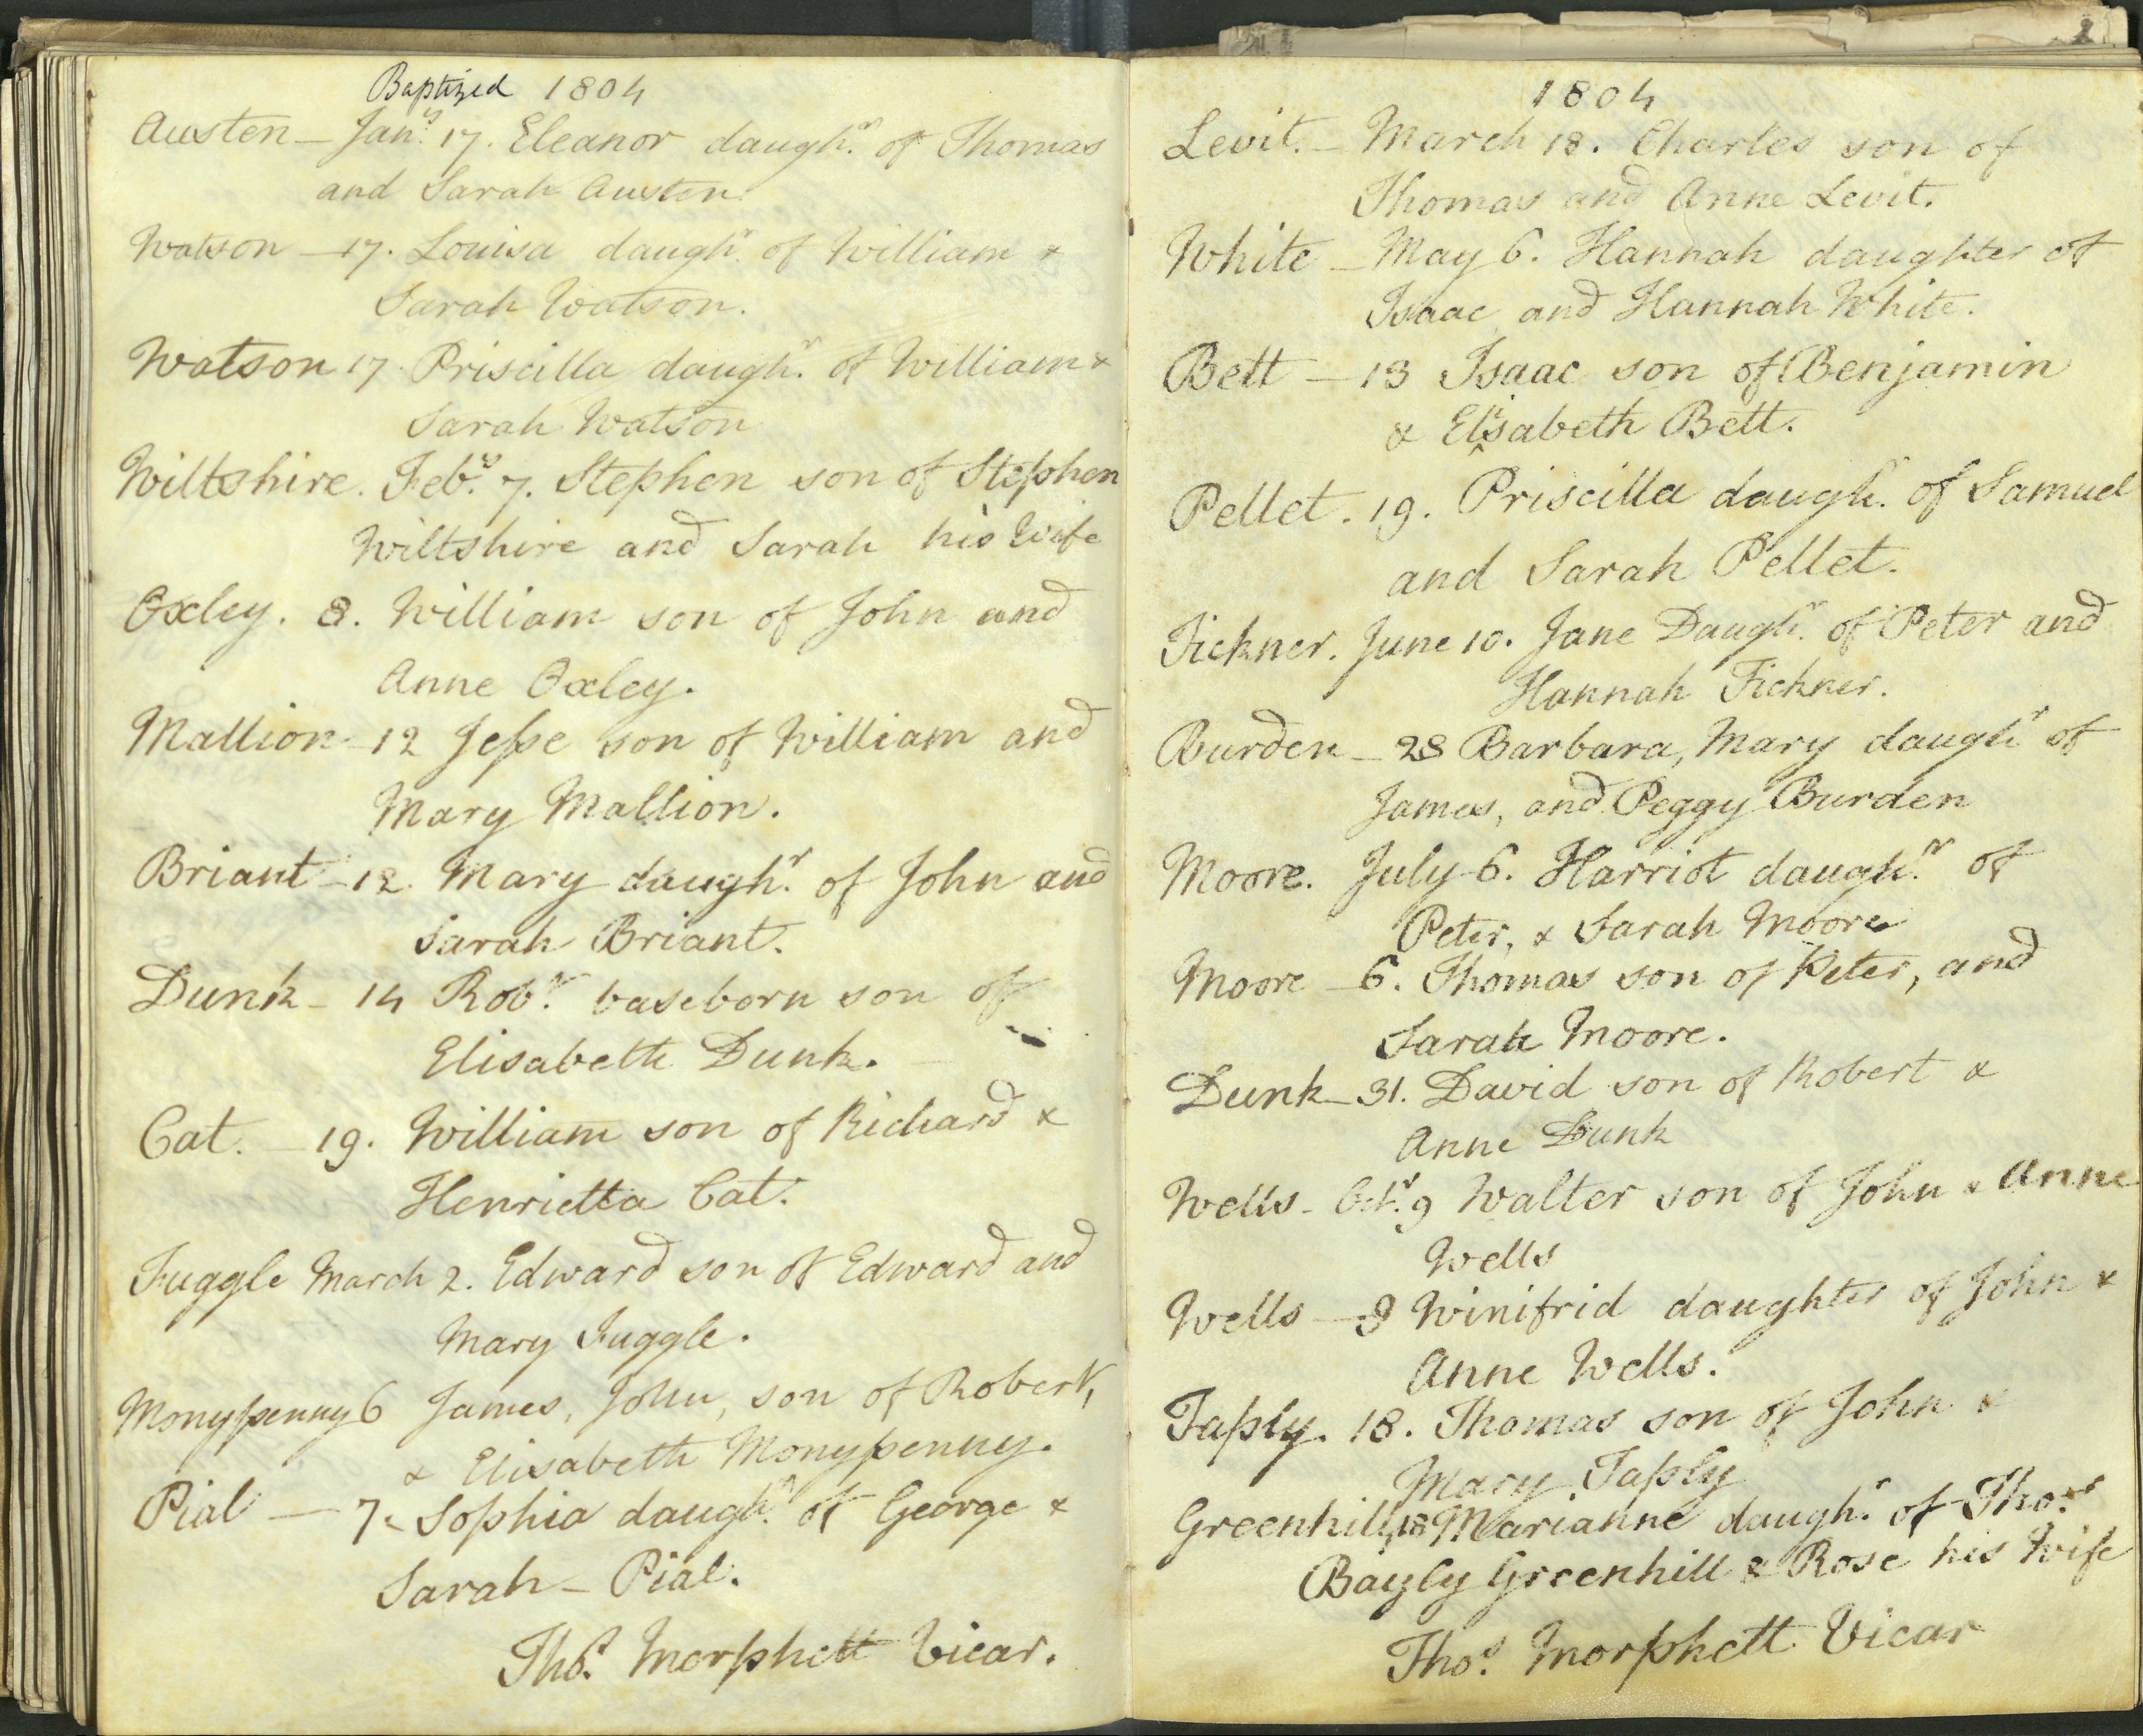 Baptized 1804
Austen — Jany. 17. Eleanor daughr. of Thomas
and Sarah Austen
Watson — 17. Louisa daughr. of William &
Sarah Watson.
Watson 17. Priscilla daughr. of William &
Sarah Watson
Wiltshire. Feby. 7. Stephen son of Stephen
Wiltshire and Sarah his Wife
Oxley. 8. William son of John and
Anne Oxley.
Mallion — 12 Jesse son of William and
Mary Mallion.
Briant — 12. Mary daughr. of John and
Sarah Briant.
Dunk — 14 Robt. baseborn son of
Elisabeth Dunk.
Cat. — 19. William son of Richard &
Henrietta Cat.
Fuggle March 2. Edward son of Edward and
Mary Fuggle.
Monypenny 6 James, John, son of Robert,
& Elisabeth Monypenny.
Pial — 7. Sophia daughr. of George &
Sarah — Pial.
Thos. Morphett Vicar.
1804
Levit. — March 18. Charles son of
Thomas and Anne Levit.
White — May 6. Hannah daughter of
Isaac and Hannah White.
Bett — 13 Isaac son of Benjamin
& Elisabeth Bett.
Pellet. 19. Priscilla daughr. of Samuel
and Sarah Pellet.
Tickner. June 10. Jane Daughr. of Peter and
Hannah Tickner.
Burden — 28 Barbara, Mary daughr of
James, and Peggy Burden
Moore. July 6. Harriot daughr. of
Peter, & Sarah Moore
Moore — 6. Thomas son of Peter, and
Sarah Moore.
Dunk — 31. David son of Robert &
Anne Dunk
Wells — Octr. 9 Walter son of John & Anne
Wells
Wells — 9 Winifrid daughter of John &
Anne Wells.
Taply. 18. Thomas son of John &
Mary Taply
Greenhill, 18 Marianne daughr. of Thos.
Bayly Greenhill & Rose his Wife
Thos. Morphett Vicar